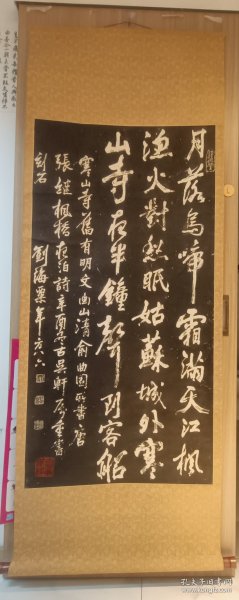 月落烏啼霜滿天江楓
漁火對愁眠姑蘇城外寒
山寺夜半鐘聲到客船
寒山寺舊有明文衡山清俞曲園所書唐
張繼楓橋夜泊詩辛酉冬古吳軒屬重書
刻石
劉海粟年方八六
孔夫子旧书网